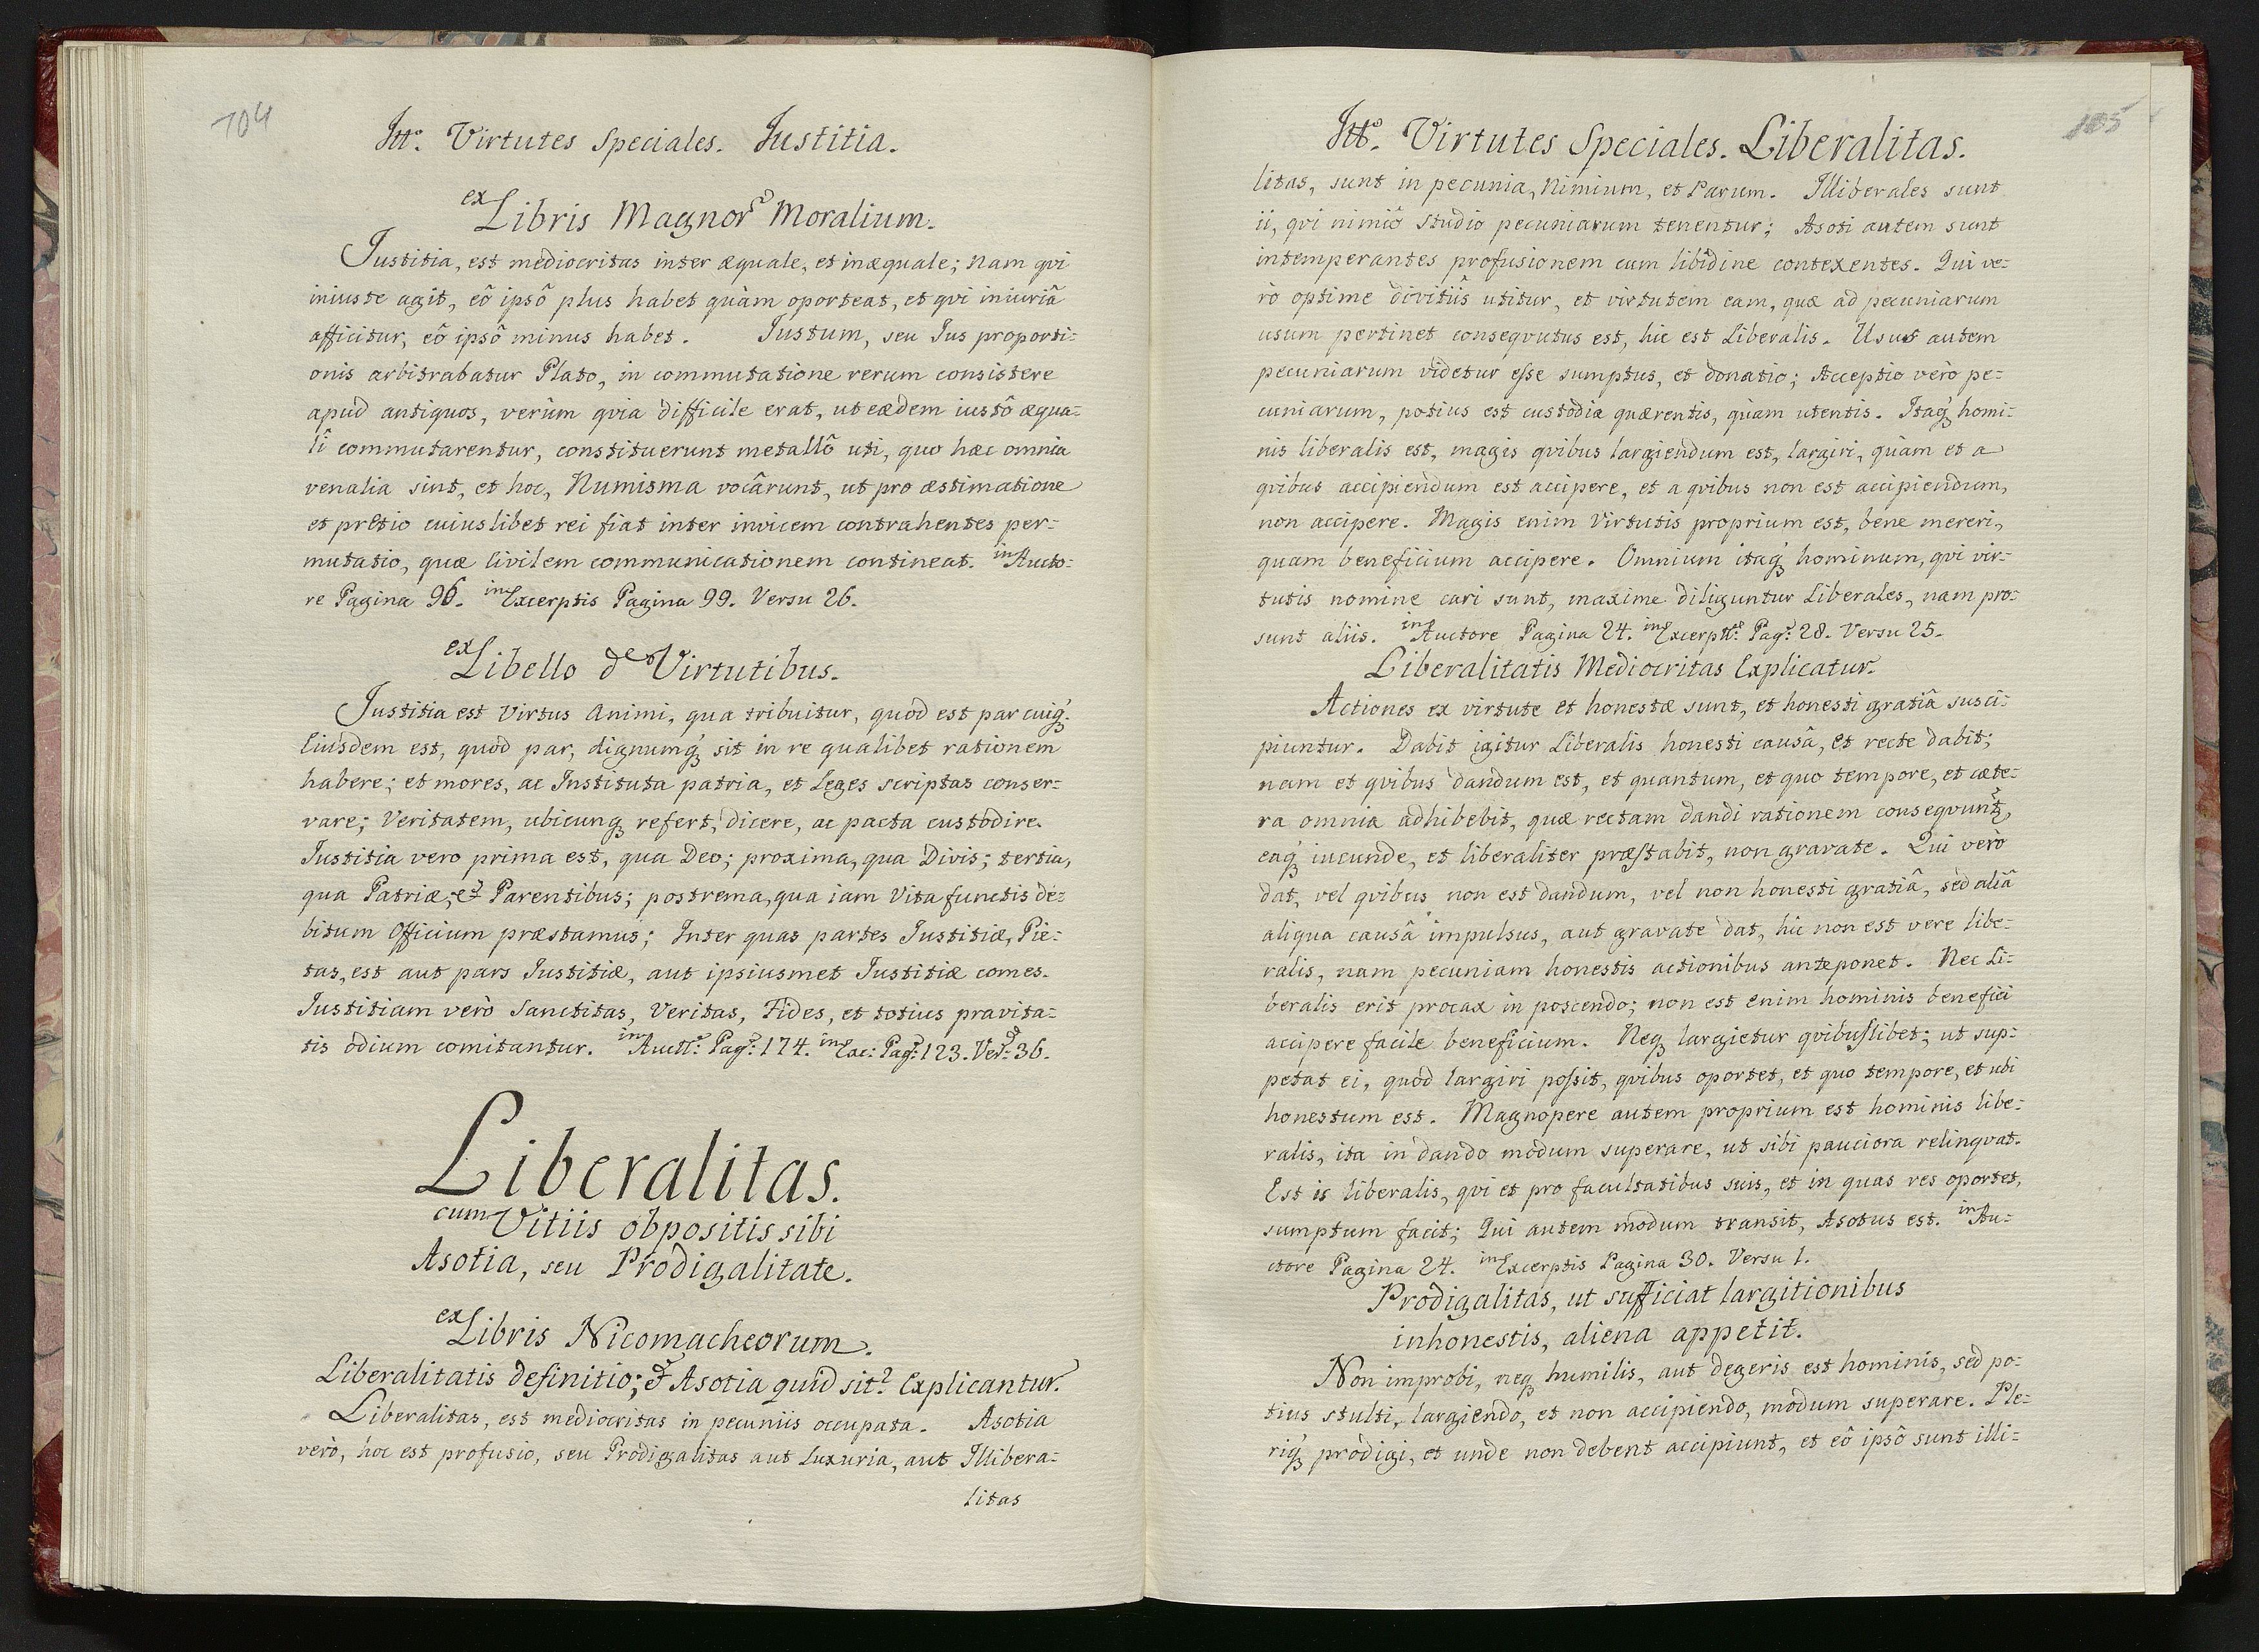 104
Itt.º Virtutes Speciales. Justitia.
ex Libris Magnor Moralium.
Justitia, est mediocritas inter æquale, et inæquale; nam qvi
iniuste agit, eô ipsô plus habet quàm oporteat, et qvi iniuriâ
afficitur, eô ipsô minus habet. Justum, seu Jus proporti=
onis arbitrabatur Plato, in commutatione rerum consistere
apud antiquos, verùm qvia difficile erat, ut eædem iustô æqua=
li commutarentur, constituerunt metallô uti, quo hæc omnia
venalia sint, et hoc, Numisma vocârunt, ut pro æstimatione
et pretio cuiuslibet rei fiat inter invicem contrahentes per=
mutatio, quæ Civilem communicationem contineat. in Aucto=
re Pagina 96. in Excerptis Pagina 99. Versu 26.
ex Libello de Virtutibus.
Justitia est Virtus Animi, qua tribuitur, quod est par cuiq́ꝫ.
Eiusdem est, quod par, dignumq́ꝫ sit in re qualibet rationem
habere; et mores, ac Instituta patria, et Leges scriptas conser=
vare; Veritatem, ubicunqꝫ refert, dicere, ac pacta custodire.
Justitia vero prima est, qua Deo; proxima, qua Divis; tertia,
qua Patriæ, et Parentibus; postrema, qua iam Vita functis de=
bitum Officium præstamus; Inter quas partes Justitiæ, Pie=
tas, est aut pars Justitiæ, aut ipsiusmet Justitiæ comes.
Justitiam verò Sanctitas, Veritas, Fides, et totius pravita=
tis odium comitantur. in Auctt: Pag: 174. in Exc: Pag: 123. Ver: 36.
Liberalitas.
cum Vitiis obpositis sibi
Asotia, seu Prodigalitate.
ex Libris Nicomacheorum.
Liberalitatis definitio; et Asotia quid sit? Explicantur.
Liberalitas, est mediocritas in pecuniis occupata. Asotia
verò, hoc est profusio, seu Prodigalitas aut Luxuria, aut Illibera=
litas
105
Itt.º Virtutes Speciales. Liberalitas.
litas, sunt in pecunia, Nimium, et Parum. Illiberales sunt
ii, qvi nimiô studio pecuniarum tenentur; Asoti autem sunt
intemperantes profusionem cum libidine contexentes. Qui ve=
rò optime divitiis utitur, et virtutem eam, quæ ad pecuniarum
usum pertinet consequutus est, hic est Liberalis. Usus autem
pecuniarum videtur esse sumptus, et donatio; Acceptio verò pe=
cuniarum, potius est custodia quærentis, quam utentis. Itaq́ꝫ homi=
nis liberalis est, magis qvibus largiendum est, largiri, quàm et a
qvibus accipiendum est accipere, et a qvibus non est accipiendum,
non accipere. Magis enim Virtutis proprium est, bene mereri,
quam beneficium accipere. Omnium itaq́ꝫ hominum, qvi vir=
tutis nomine cari sunt, maxime diliguntur Liberales, nam pro=
sunt aliis. in Auctore Pagina 24. in Excerptt: Pag: 28. Versu 25.
Liberalitatis Mediocritas Explicatur.
Actiones ex virtute et honestæ sunt, et honesti gratiâ susci=
piuntur. Dabit igitur Liberalis honesti causâ, et recte dabit;
nam et qvibus dandum est, et quantum, et quo tempore, et cæte=
ra omnia adhibebit, quæ rectam dandi rationem conseqvunt,
eaq́ꝫ iucunde, et liberaliter præstabit, non gravate. Qui verò
dat, vel qvibus non est dandum, vel non honesti gratiâ, sed aliâ
aliqua causâ impulsus, aut gravate dat, hic non est vere libe=
ralis, nam pecuniam honestis actionibus anteponet. Nec Li=
beralis erit procax in poscendo; non est enim hominis benefici
accipere facile beneficium. Neqꝫ largietur qvibuslibet; ut sup=
petat ei, quod largiri possit, qvibus oportet, et quo tempore, et ubi
honestum est. Magnopere autem proprium est hominis libe=
ralis, ita in dando modum superare, ut sibi pauciora relinqvat.
Est is liberalis, qvi et pro facultatibus suis, et in quas res oportet,
sumptum facit; Qui autem modum transit, Asotus est. in Au=
ctore Pagina 24. in Excerptis Pagina 30. Versu 1.
Prodigalitas, ut sufficiat largitionibus
inhonestis, aliena appetit.
Non improbi, neqꝫ humilis, aut degeris est hominis, sed po=
tius stulti, largiendo, et non accipiendo, modum superare. Ple=
riq́ꝫ prodigi, et unde non debent accipiunt, et eô ipsô sunt illi=